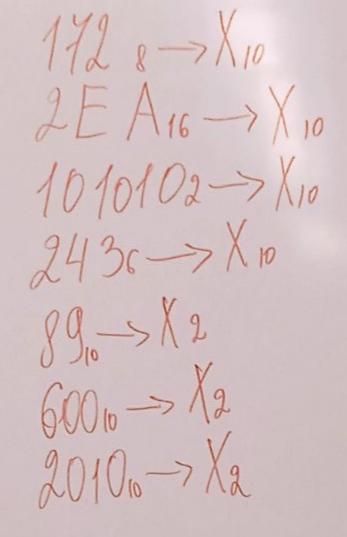 172₈→X₁₀
2EA₁₆→X₁₀
101010₂→X₁₀
243₆→X₁₀
89₁₀→X₂
600₁₀→X₂
2010₁₀→X₂